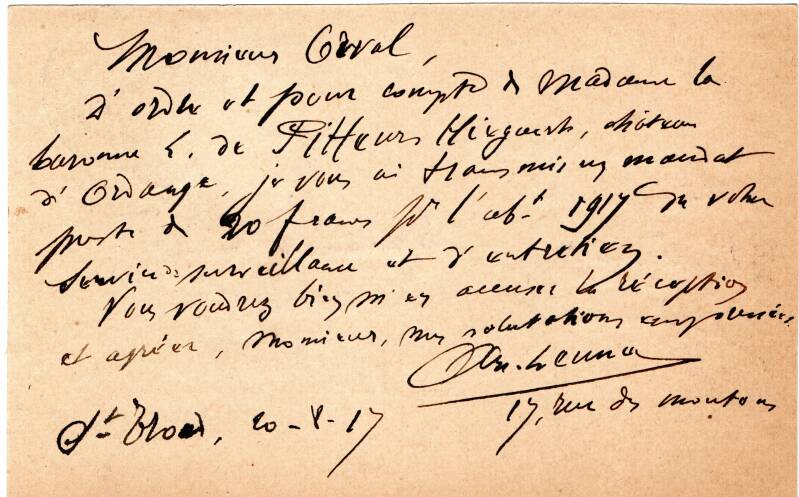 Monsieur Orval,
D'ordre et pour compte de Madame la
baronne E. de Pitteurs Hiegaerts, château
d'Ordange, je vous ai transmis un mandat
poste de 20 francs pr l'abt 1917 de votre
service de surveillance et d'entretien.
Vous voudrez bien m'en accuser la réception
et agréer, Monsieur, mes salutations empressées.
17, rue des moutons
St Trond, 20-8-17